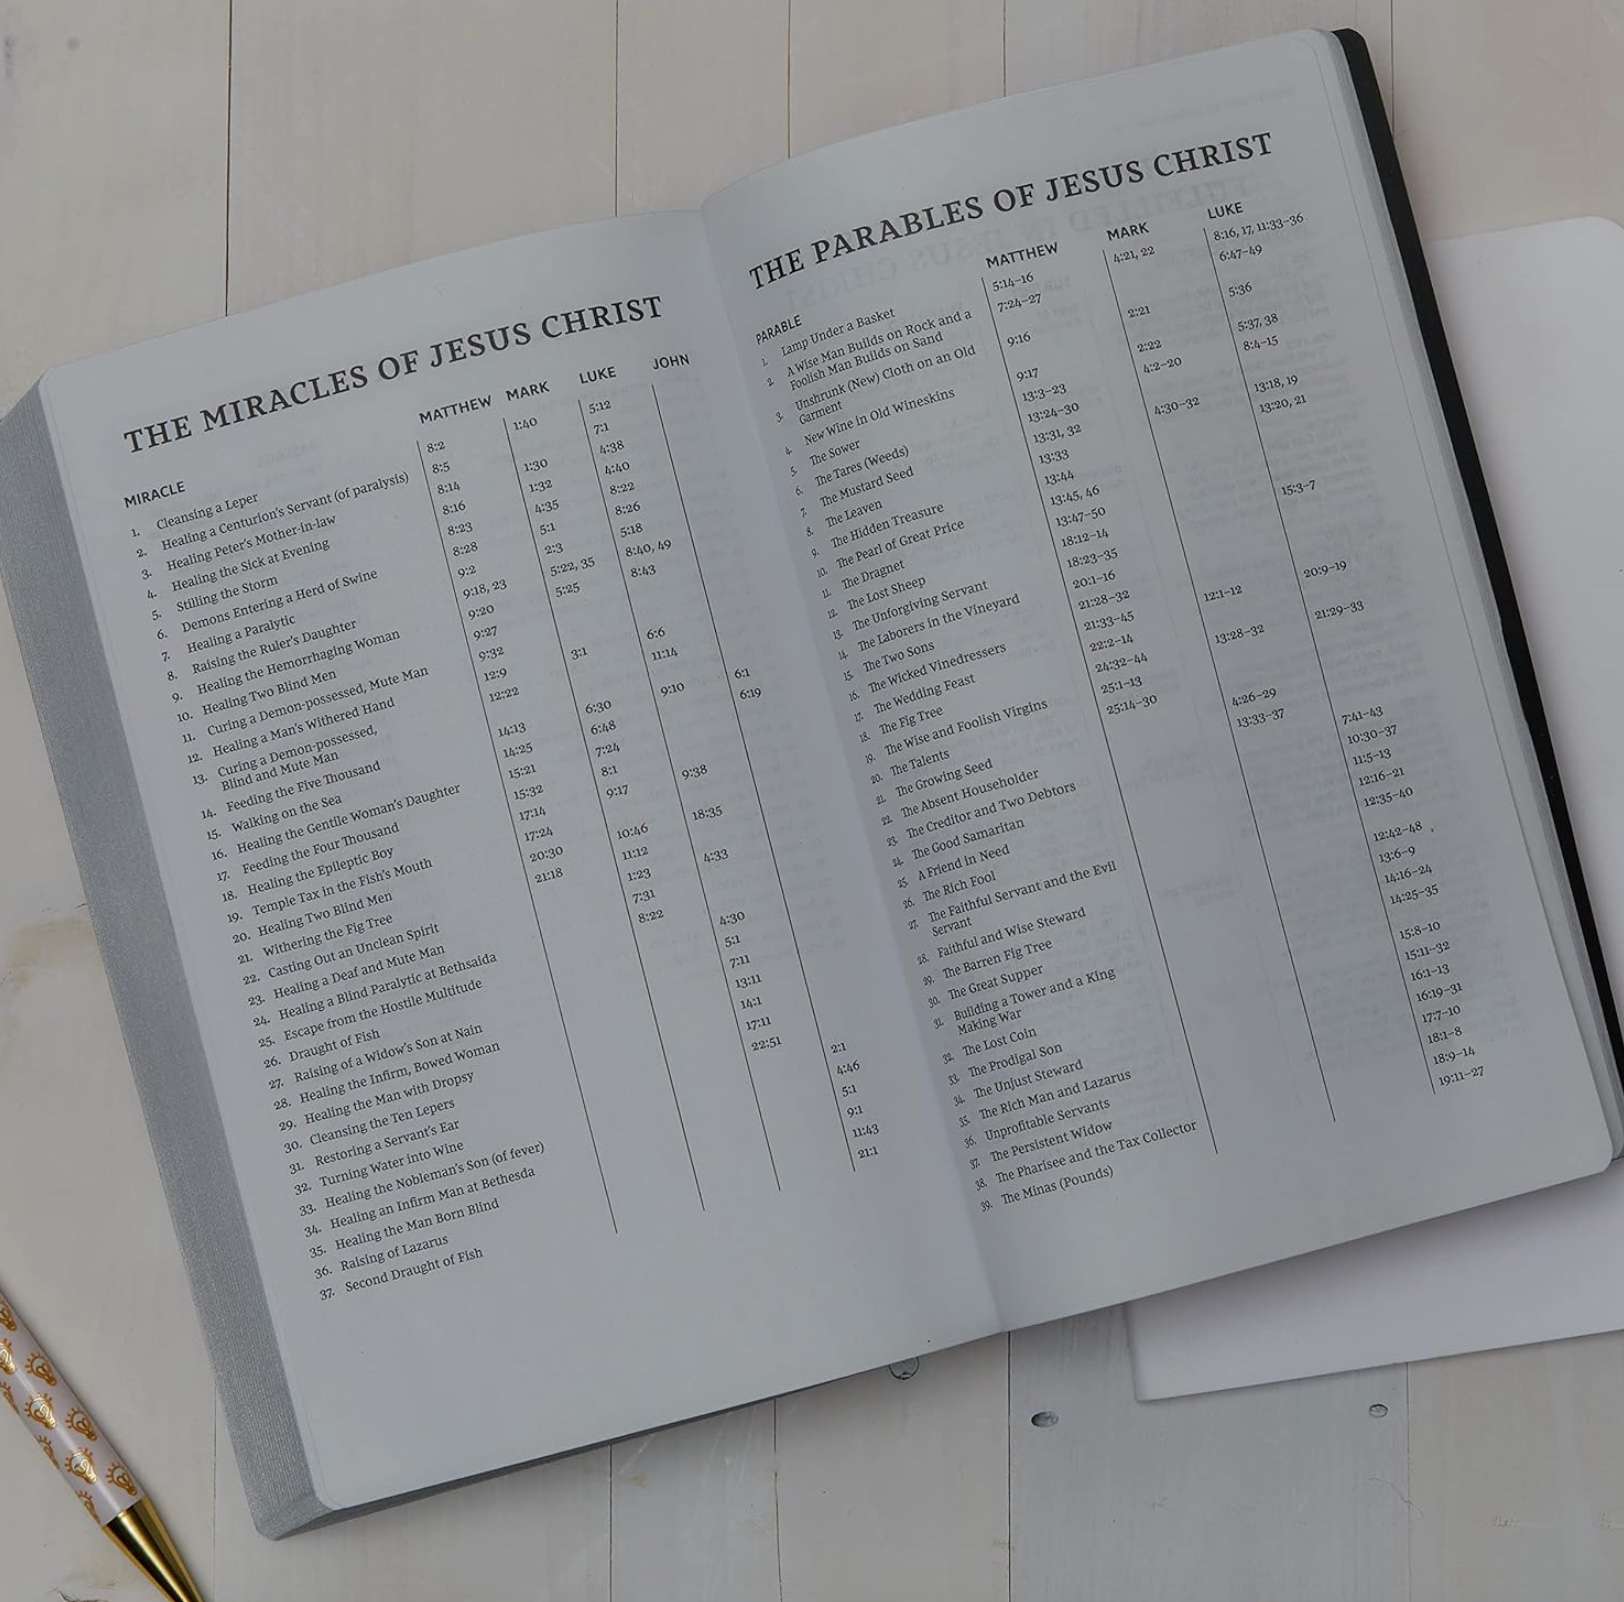 THE MIRACLES OF JESUS CHRIST
MIRACLE MATTHEW MARK LUKE JOHN
1. Cleansing a Leper 8:2 1:40 5:12
2. Healing a Centurion's Servant (of paralysis) 8:5 7:1
3. Healing Peter's Mother-in-law 8:14 1:30 4:38
4. Healing the Sick at Evening 8:16 1:32 4:40
5. Stilling the Storm 8:23 4:35 8:22
6. Demons Entering a Herd of Swine 8:28 5:1 8:26
7. Healing a Paralytic 9:2 2:3 5:18
8. Raising the Ruler's Daughter 9:18, 23 5:22, 35 8:40, 49
9. Healing the Hemorrhaging Woman 9:20 5:25 8:43
10. Healing Two Blind Men 9:27
11. Curing a Demon-possessed, Mute Man 9:32
12. Healing a Man's Withered Hand 12:9 3:1 6:6
13. Curing a Demon-possessed, 12:22 11:14
Blind and Mute Man
14. Feeding the Five Thousand 14:13 6:30 9:10 6:1
15. Walking on the Sea 14:25 6:48 6:19
16. Healing the Gentile Woman's Daughter 15:21 7:24
17. Feeding the Four Thousand 15:32 8:1
18. Healing the Epileptic Boy 17:14 9:17 9:38
19. Temple Tax in the Fish's Mouth 17:24
20. Healing Two Blind Men 20:30 10:46 18:35
21. Withering the Fig Tree 21:18 11:12
22. Casting Out an Unclean Spirit 1:23 4:33
23. Healing a Deaf and Mute Man 7:31
24. Healing a Blind Paralytic at Bethsaida 8:22
25. Escape from the Hostile Multitude 4:30
26. Draught of Fish 5:1
27. Raising of a Widow's Son at Nain 7:11
28. Healing the Infirm, Bowed Woman 13:11
29. Healing the Man with Dropsy 14:1
30. Cleansing the Ten Lepers 17:11
31. Restoring a Servant's Ear 22:51
32. Turning Water into Wine 2:1
33. Healing the Nobleman's Son (of fever) 4:46
34. Healing an Infirm Man at Bethesda 5:1
35. Healing the Man Born Blind 9:1
36. Raising of Lazarus 11:43
37. Second Draught of Fish 21:1
THE PARABLES OF JESUS CHRIST
PARABLE MATTHEW MARK LUKE
1. Lamp Under a Basket 5:14–16 4:21, 22 8:16, 17, 11:33–36
2. A Wise Man Builds on Rock and a 7:24–27 6:47–49
Foolish Man Builds on Sand
3. Unshrunk (New) Cloth on an Old 9:16 2:21 5:36
Garment
4. New Wine in Old Wineskins 9:17 2:22 5:37, 38
5. The Sower 13:3–23 4:2–20 8:4–15
6. The Tares (Weeds) 13:24–30
7. The Mustard Seed 13:31, 32 4:30–32 13:18, 19
8. The Leaven 13:33 13:20, 21
9. The Hidden Treasure 13:44
10. The Pearl of Great Price 13:45, 46
11. The Dragnet 13:47–50
12. The Lost Sheep 18:12–14 15:3–7
13. The Unforgiving Servant 18:23–35
14. The Laborers in the Vineyard 20:1–16
15. The Two Sons 21:28–32
16. The Wicked Vinedressers 21:33–45 12:1–12 20:9–19
17. The Wedding Feast 22:2–14
18. The Fig Tree 24:32–44 13:28–32 21:29–33
19. The Wise and Foolish Virgins 25:1–13
20. The Talents 25:14–30
21. The Growing Seed 4:26–29
22. The Absent Householder 13:33–37
23. The Creditor and Two Debtors 7:41–43
24. The Good Samaritan 10:30–37
25. A Friend in Need 11:5–13
26. The Rich Fool 12:16–21
27. The Faithful Servant and the Evil 12:35–40
Servant
28. Faithful and Wise Steward 12:42–48
29. The Barren Fig Tree 13:6–9
30. The Great Supper 14:16–24
31. Building a Tower and a King 14:25–35
Making War
32. The Lost Coin 15:8–10
33. The Prodigal Son 15:11–32
34. The Unjust Steward 16:1–13
35. The Rich Man and Lazarus 16:19–31
36. Unprofitable Servants 17:7–10
37. The Persistent Widow 18:1–8
38. The Pharisee and the Tax Collector 18:9–14
39. The Minas (Pounds) 19:11–27